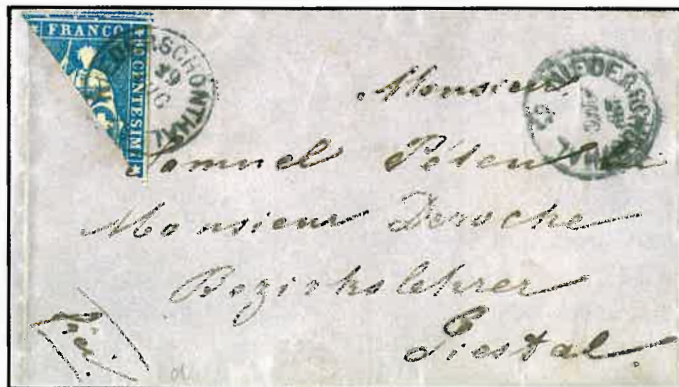 FRANCO
CENTESIMI
Monsieur
Samuel
Monsieur Deroche
Bezirkslehrer
Liestal.
frei.